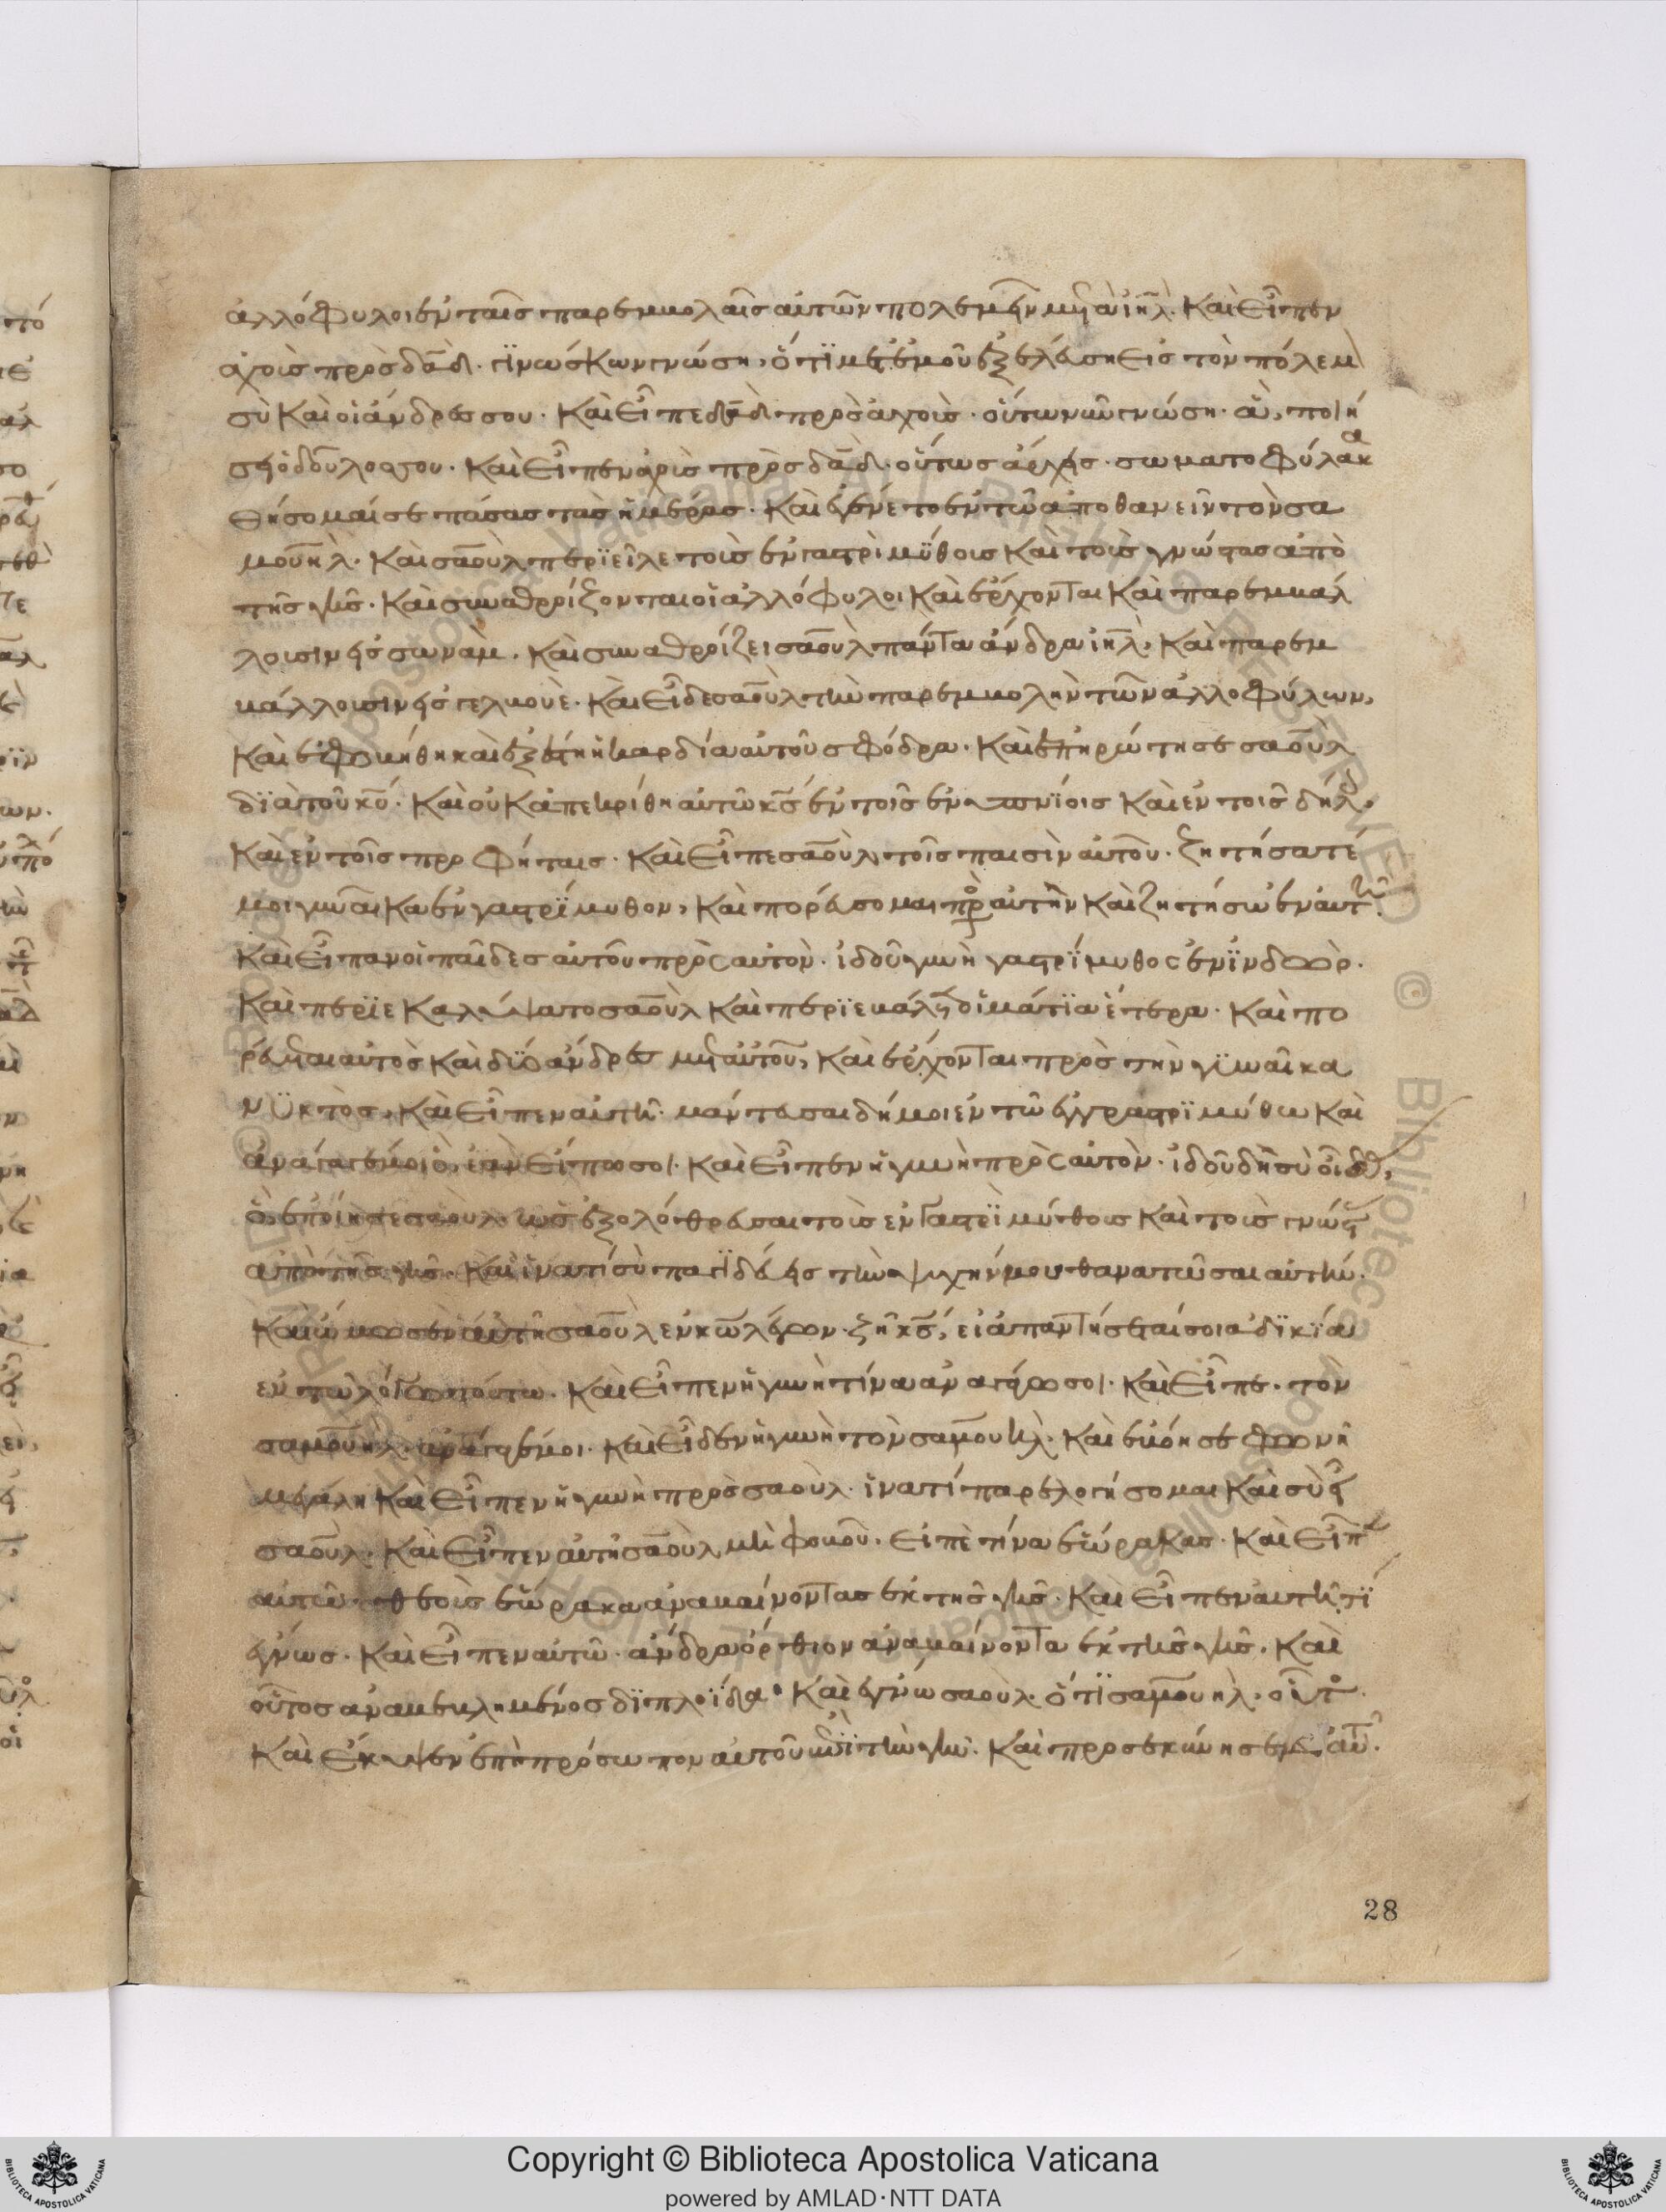 ἀλλόφυλοι ἐν ταῖς παρεμβολαῖς αὐτῶν πολεμεῖν μετὰ ἰηλ. Καὶ εἶπεν
ἀχοὶς πρὸς δαδ. γϊνώσκων γνώση, ὅτϊ μετ ἐμοῦ ἐξελεύση εἰς τὸν πόλεμ
σὺ καὶ οἱ άνδρες σου. Καὶ εἶπε δαδ πρὸς ἀχοὶς. οὕτω νῦν γνώση. ἃ, ποιή
σει ὁ δοῦλος σου. Καὶ εἶπεν ἀχοὶς πρὸς δαδ. οὕτως ἀρχης. σωματοφύλακα
θήσομαί σε πάσας τὰς ἡμέρας. Καὶ ἐγένετο ἐν τῶ ἀποθανεῖν τὸν σα
μουὴλ. Καὶ σαοὺλ περϊεῖλε τοὺς ἐγγαστρὶ μύθους καὶ τοὺς γνώστας ἀπὸ
τῆς γῆς. Καὶ συναθροίζονται οἱ ἀλλόφυλοι καὶ ἔρχονται καὶ παρεμβάλ
λουσιν εἰς σωνὰμ. Καὶ συναθροίζει σαοὺλ πάντα ἄνδρα ἰηλ, καὶ παρεμ
βάλλουσιν εἰς γελβουὲ. Καὶ εἶδε σαοὺλ τὴν παρεμβολὴν τῶν ἀλλοφύλων,
καὶ ἐφοβήθη καὶ ἐξέστη ἡ καρδία αὐτοῦ σφόδρα. Καὶ ἐπηρώτησε σαοὺλ
δϊὰ τοῦ κυ. Καὶ οὐκ ἀπεκρίθη αὐτῶ κς ἐν τοῖς ἐνυπνίοις καὶ ἐν τοῖς δήλ,
καὶ ἐν τοῖς προφήταις. Καὶ εἶπε σαοὺλ τοῖς παισὶν αὐτοῦ. ζητήσατέ
μοι γυναῖκα ἐνγαστρϊμυθον, καὶ πορεύσομαι πρὸς αὐτὴν καὶ ζητήσω ἐν αὐτῆ.
Καὶ εἶπαν οἱ παῖδες αὐτοῦ πρὸς αὐτὸν. ἰδοὺ γυνὴ γαστρϊμυθος ἐν ϊνδωρ.
Καὶ περϊεκαλύψατο σαοὺλ καὶ περϊεβάλετο ϊμάτϊα ἕτερα. Καὶ πο
ρεύεται αὐτὸς καὶ δύο άνδρες μετ αὐτοῦ, καὶ ἔρχονται πρὸς τὴν γυναῖκα
νϋκτὸς, καὶ εἶπεν αὐτῆ. μάντευσαι δή μοι ἐν τῶ ἐγγαστρϊμύθω καὶ
ἀνάγαγέ μοι ὃ, ἐὰν εἴπω σοι. Καὶ εἶπεν ἡ γυνὴ πρὸς αὐτὸν. ἰδοὺ δὴ σὺ οἶδας,
ὃ, ἐποίησε σαοὺλ. ὡς ἐξολόθρευσαι τοὺς ἐνγαστρϊμύθους καὶ τοὺς γνώστ
ἀπὸ τῆς γῆς. Καὶ ἱνατί σὺ παγϊδεύεις τὴν ψυχήν μου θανατῶσαι αὐτήν.
Καὶ ώμοσεν αὐτῆ σαοὺλ ἐν κω λέγων. ζῆ κς, εἰ ἀπαντήσεταί σοι ἀδϊκϊα
ἐν τῶ λόγω τούτω. Καὶ εἶπεν ἡ γυνὴ τίνα ἀναγάγω σοι. Καὶ εἶπε. τὸν
σαμουὴλ ἀνάγαγέ μοι. Καὶ εἶδεν ἡ γυνὴ τὸν σαμουὴλ. καὶ ἐβόησε φωνῆ
μεγάλη καὶ εἶπεν ἡ γυνὴ πρὸς σαοὺλ. ἱνατί παρελογήσομαι καὶ σὺ εἶ
σαοὺλ. Καὶ εἶπεν αὐτῆ σαοὺλ μὴ φοβοῦ. εἰπὲ τίνα ἑώρακας. Καὶ εἶπεν
αὐτῶ. θεοὺς ἑώρακα ἀναβαίνοντας ἐκ τῆς γῆς. Καὶ εἶπεν αὐτῆ τϊ
έγνως. Καὶ εἶπεν αὐτῶ. ἄνδρα ὄρθιον ἀναβαίνοντα ἐκ τῆς γῆς. Καὶ
οὗτος ἀναβεβλημένος δϊπλοΐδα. Καὶ ἔγνω σαοὺλ. ὅτϊ σαμουὴλ. οὗτος.
Καὶ έκυψεν ἐπὶ πρόσωπον αὐτοῦ ἐπὶ τὴν γῆν. καὶ προσεκύνησεν αὐτῶ.
28